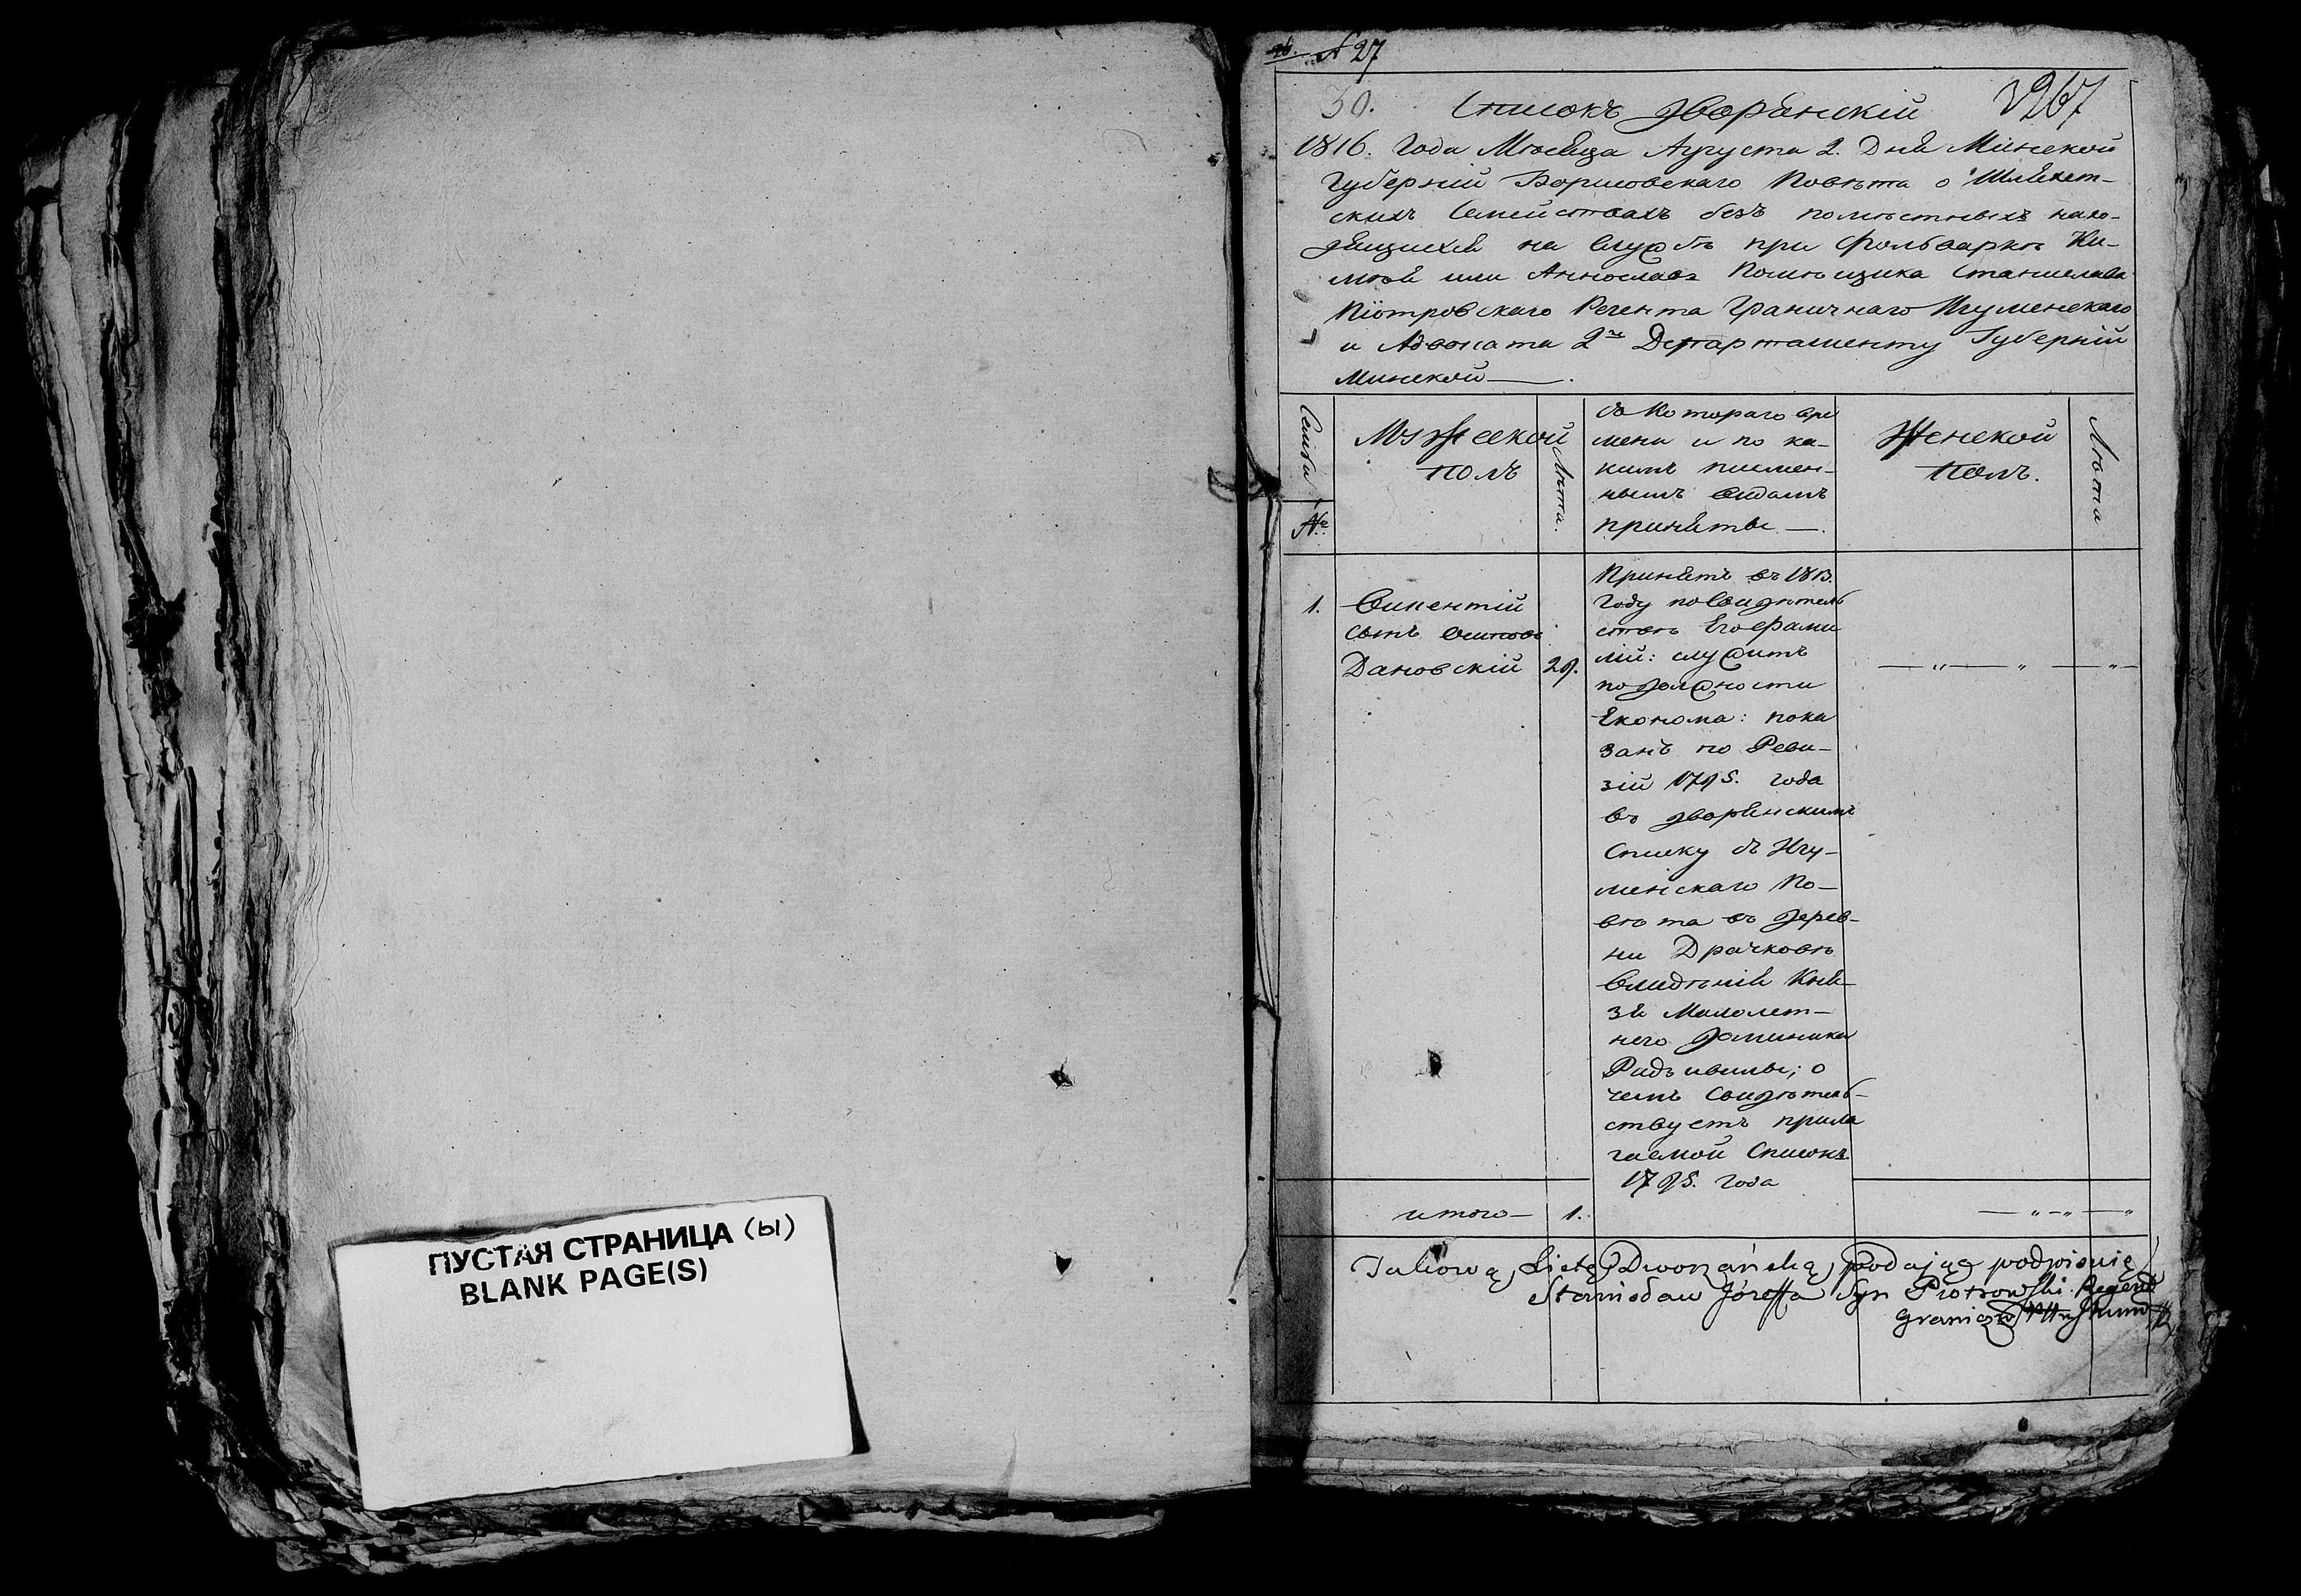 ПУСТАЯ СТРАНИЦА (ы)
BLANK PAGE(S)
№ 27
30. Списокъ дворянскій 267
1816. Года Мѣсяца Августа 2. Дня Минской
Губерній Борисовскаго Повѣта о Шляхет-
скихъ Семействахъ безъ помѣстныхъ нахо-
дящихся на Службѣ при фольваркѣ Ки-
или Аннославѣ Помѣщика Станислава
Піотровскаго Регента Граничнаго Игуменскаго
и Адвоката 2го Департаменту Губерній
Минской —.
Семьи
№
Мужеской
полъ
Лѣта.
Съ Котораго вре
мени и по ка-
кимъ писмен-
нымъ видамъ
приняты —.
Женской
полъ.
Лѣта
1. Викентій
сынъ Осиповъ
Дановскій 29.
Принятъ въ 1813.
Году по Свидѣтель
ству Его фами
лій: служитъ
по должности
Економа: пока
занъ по Реви-
зій 1795. года
въ дворянскимъ
Списку съ Игу-
менскаго По-
вѣта въ дерев-
ни Драчковѣ
Владѣнія Кня-
зя Малолет-
него Доминика
Радзивилы; о
чемъ Свидѣтель-
ствуетъ прила
гаемой Списокъ
1795. года
— „ — „ — „ —
итого — 1.
— „ — „ — „
Takową Listę Dworzańską podając podpisuję
Stanisław Józeffa Syn Piotrowski Regent
Granicz